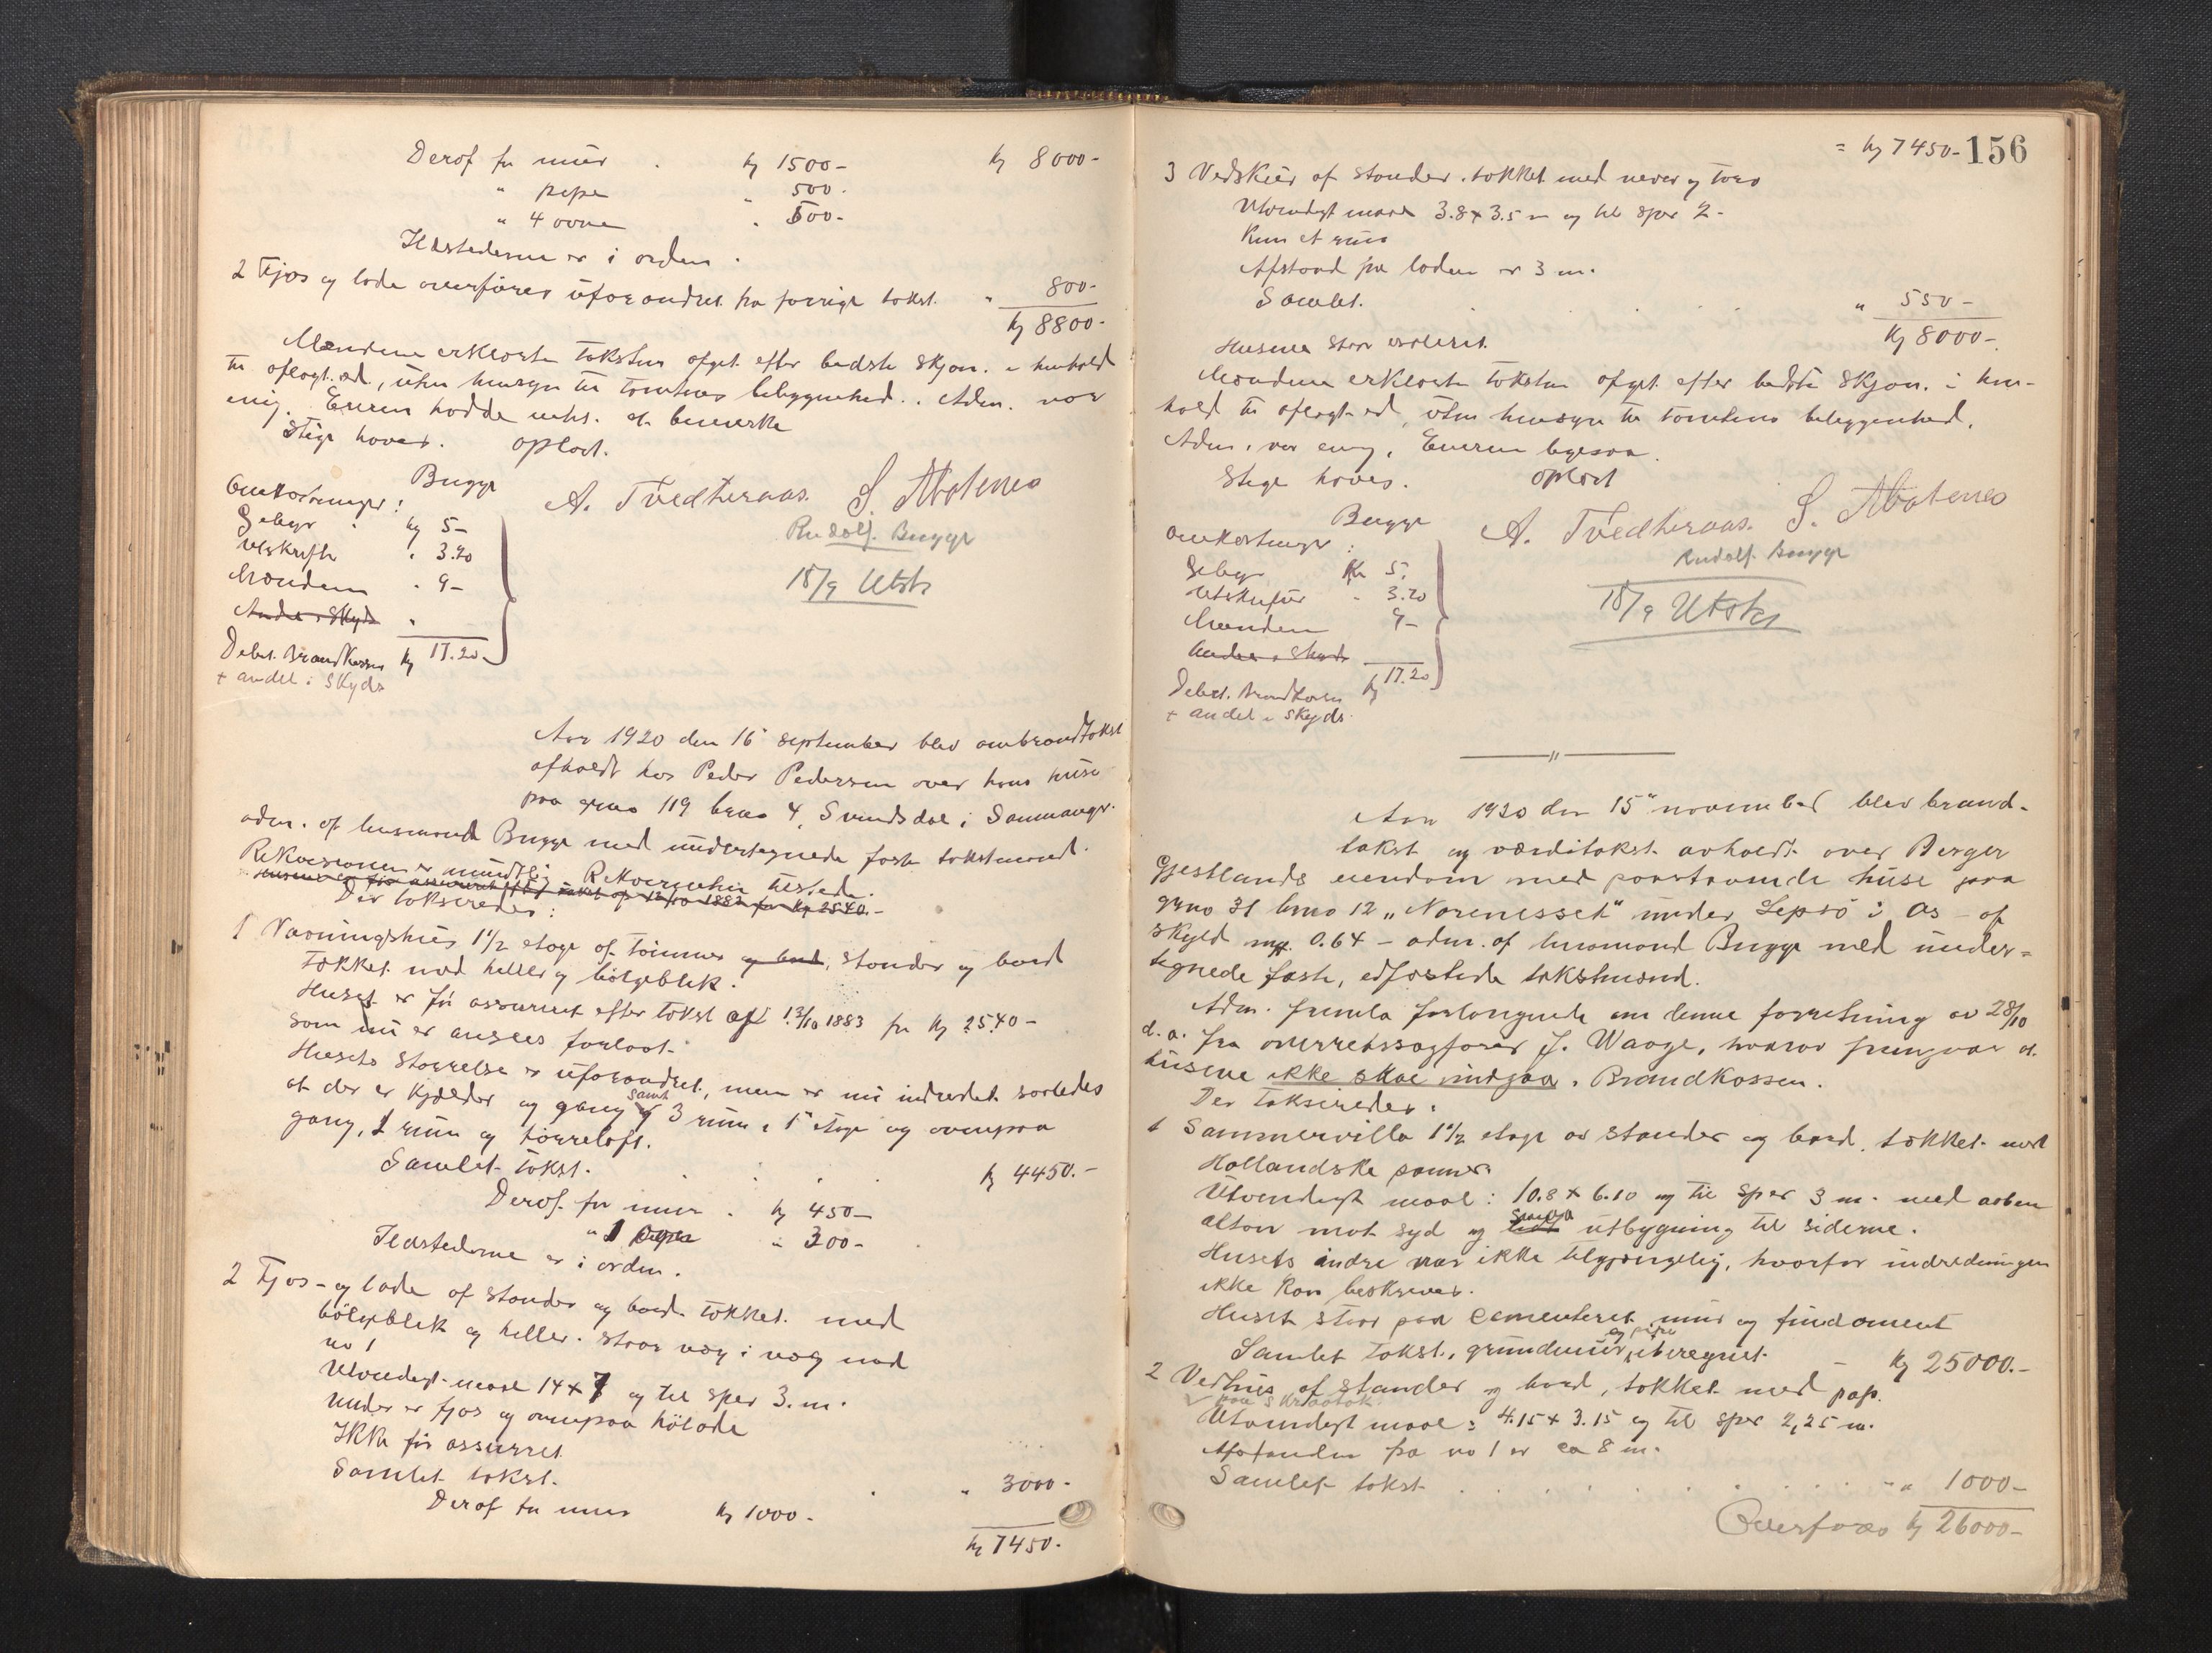 Derof for mur . kr 1500- kr 8000-
" pipe " 500.
" 4 ovne . 500-
Ildstederne er i orden.
2 Fjøs og lade overføres uforandret fra forrige takst. " 800-
kr 8800-
Mændene erklærte taksten afget. efter bedste skjøn i henhold
til aflagt ed, uten hensyn til tomtens beliggenhed. Adm. var
enig. Eieren hadde intet at bemerke
Stige haves. Oplæst.
Bugge A. Tvedteraas. S. Møsenes
Rudolf Bugge
15/9 Utsk
Omkostninger:
Gebyr . kr 5-
Utskrifter . 3.20
Mændene . 9-
Andel i Skyds "
Debet. Brandkassen kr 17.20
+ andel i Skyds
Aar 1920 den 16 september blev ombrandtakst
afholdt hos Peder Pedersen over hans huse
paa grno 119 brno 4, Svendsdal i Samnanger.
adm. af lensmand Bugge med undertegnede faste takstmænd.
Rekvisisionen er mundtlig. Rekvirenten tilstede.
Husene er før assureret efter takst af 13/10 1883 for kr 2540.-
Der takseredes:
1 Vaaningshus 1 1/2 etage af tømmer og bord, stander og bord
tækket med heller og bølgeblik.
Huset er før assureret efter takst af 13/10 1883 for kr 2540-
som nu er ansees forlavt.
Husets størrelse er uforandret, men er nu indredet saaledes
at der er kjælder og gang samt 3 rum i 1 etage og ovenpaa
gang, 1 rum og tørreloft.
Samlet takst. . . . kr 4450.-
Deraf for mur . kr 450-
" 1 pipe " 300-
Ildstederne er i orden.
2 Fjøs- og lade af stander og bord tækket med
bølgeblik og heller. staar væg i væg med
no 1
Utvendigt maal 14 x 7 og til sper 3. m.
Under er fjøs og ovenpaa hølade
Ikke før assurret
Samlet takst. . " 3000-
Deraf for mur kr 1000-
kr 7450.
= kr 7450- 156
3 Vedskur af stander tækket med never og torv
Utvendigt maal 3.8 x 3.5 m og til sper 2-
Kun et rum
Afstand fra laden er 3 m.
Samlet. . . . " 550-
kr 8000-
Husene staar isoleret.
Mændene erklærte taksten afget. efter bedste skjøn i hen-
hold til aflagt ed, uten hensyn til tomtens beliggenhed.
Adm. var enig. Eieren ligesaa.
Stige haves. Oplæst
Bugge A. Tvedteraas. S. Møsenes
Rudolf Bugge
15/9 Utsk
Omkostninger:
Gebyr Kr 5.
Utskrifter - 3.20
Mændene 9-
Andel i Skyds
Debet. Brandkassen kr 17.20
+ andel i Skyds.
Aar 1920 den 15 november blev brand-
takst og værditakst avholdt over Berger
Gjestlands eiendom med paastaaende huse paa
grno 31 brno 12 "Norenesset" under Lepsø i Os - af
skyld mk. 0.64 - adm. af lensmand Bugge med under=
tegnede faste, edfæstede takstmænd.
Adm. fremla forlangende om denne forretning av 28/10
d.a. fra overretssagfører J. Waage, hvorav fremgaar at
husene ikke skal indgaa i Brandkassen.
Der takseredes:
1 Sommervilla 1 1/2 etage av stander og bord, tækket med
Hollandske panner.
Utvendigt maal: 10.8 x 6.10 og til sper 3 m. med aaben
altan mot syd og utbygning til siderne.
Husets indre var ikke tilgjængelig, hvorfor indredningen
ikke kan beskrives.
Huset staar paa cementeret mur og fundament
Samlet takst., grundmur og pipe iberegnet. - kr 25000.-
2 Vedhus af stander og bord, tækket med pap.
Utvendigt maal: 4.15 x 3.15 og til sper 2,25 m.
Afstanden fra no 1 er ca 8 m.
Samlet takst . . . . " 1000-
Overføres kr 26000-